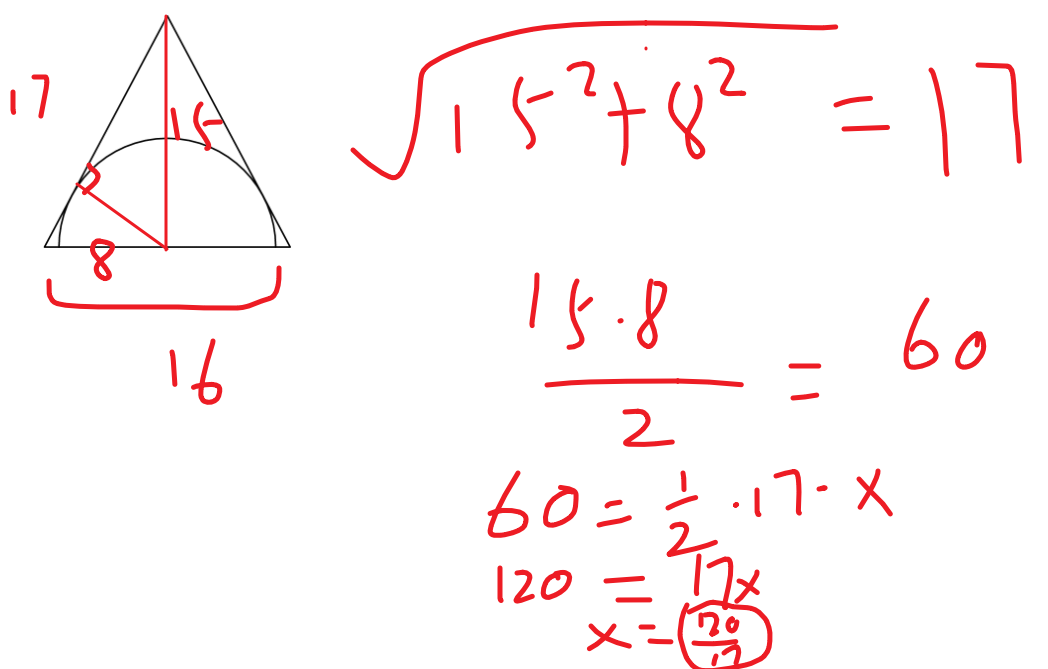 17
15
8
16
√15²+8² = 17
15·8/2 = 60
60 = 1/2 · 17 · x
120 = 17x
x = 120/17